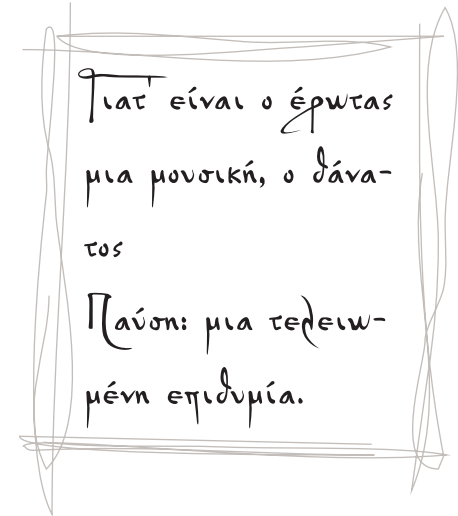 Γιατ' είναι ο έρωτας
μια μουσική, ο θάνα-
τος
Παύση: μια τελειω-
μένη επιθυμία.